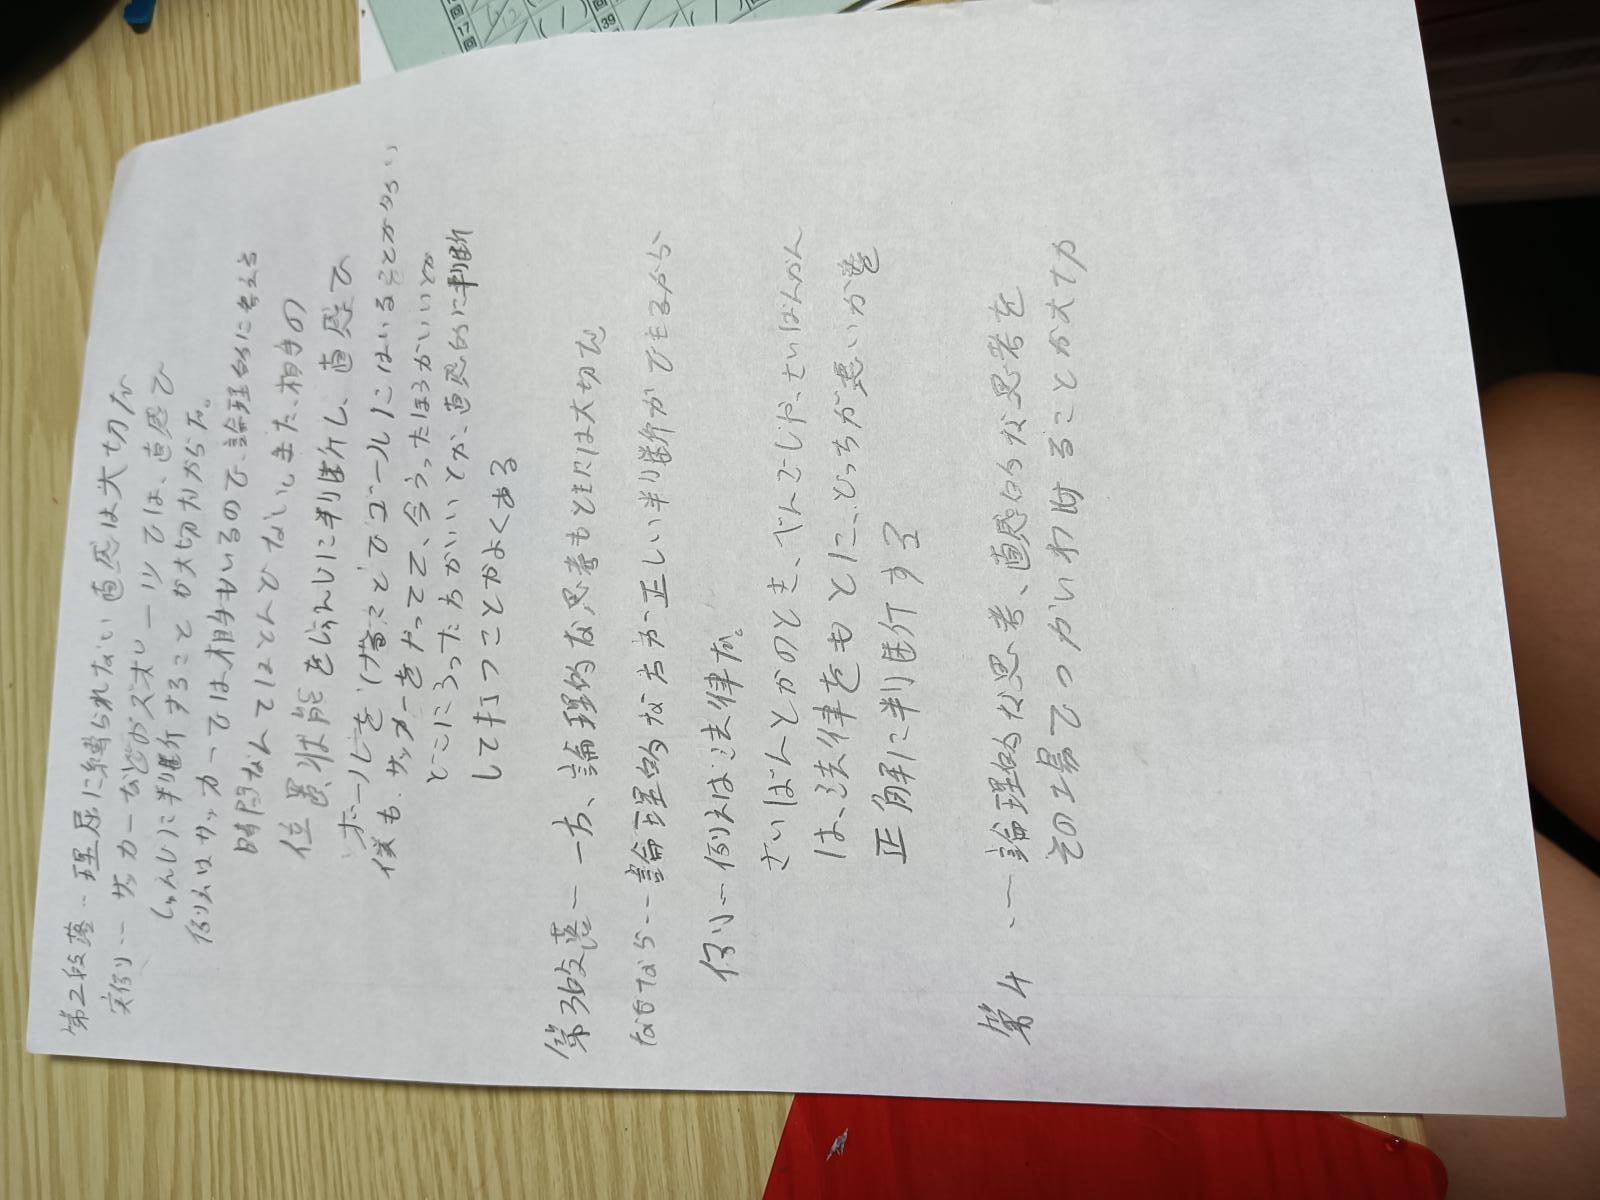 第2段落…理屈に縛られない直感は大切だ
実例…サッカーなどのスポーツでは、直感で
しゅんじに判断することが大切だからだ。
例えばサッカーでは相手もいるので、論理的に考える
時間なんてほとんどないしまた、相手の
位置状態をしゅんじに判断し、直感で
ボールをけることでゴールにはいることが多い
僕も、サッカーをやってて、今うったほうがいいとか
どこにうったらがいいとか、直感的に判断
して打つことがよくある
第3段落ー一方、論理的な思考もときには大切だ
なぜなら…論理的な方が正しい判断ができるから
例…例えば法律だ。
さいばんとかのとき、べんごしや、さいばんかん
は、法律をもとに、どっちが悪いかを
正解に判断する
第4…論理的な思考、直感的な思考を
その場でつかいわけることが大切
17回
39